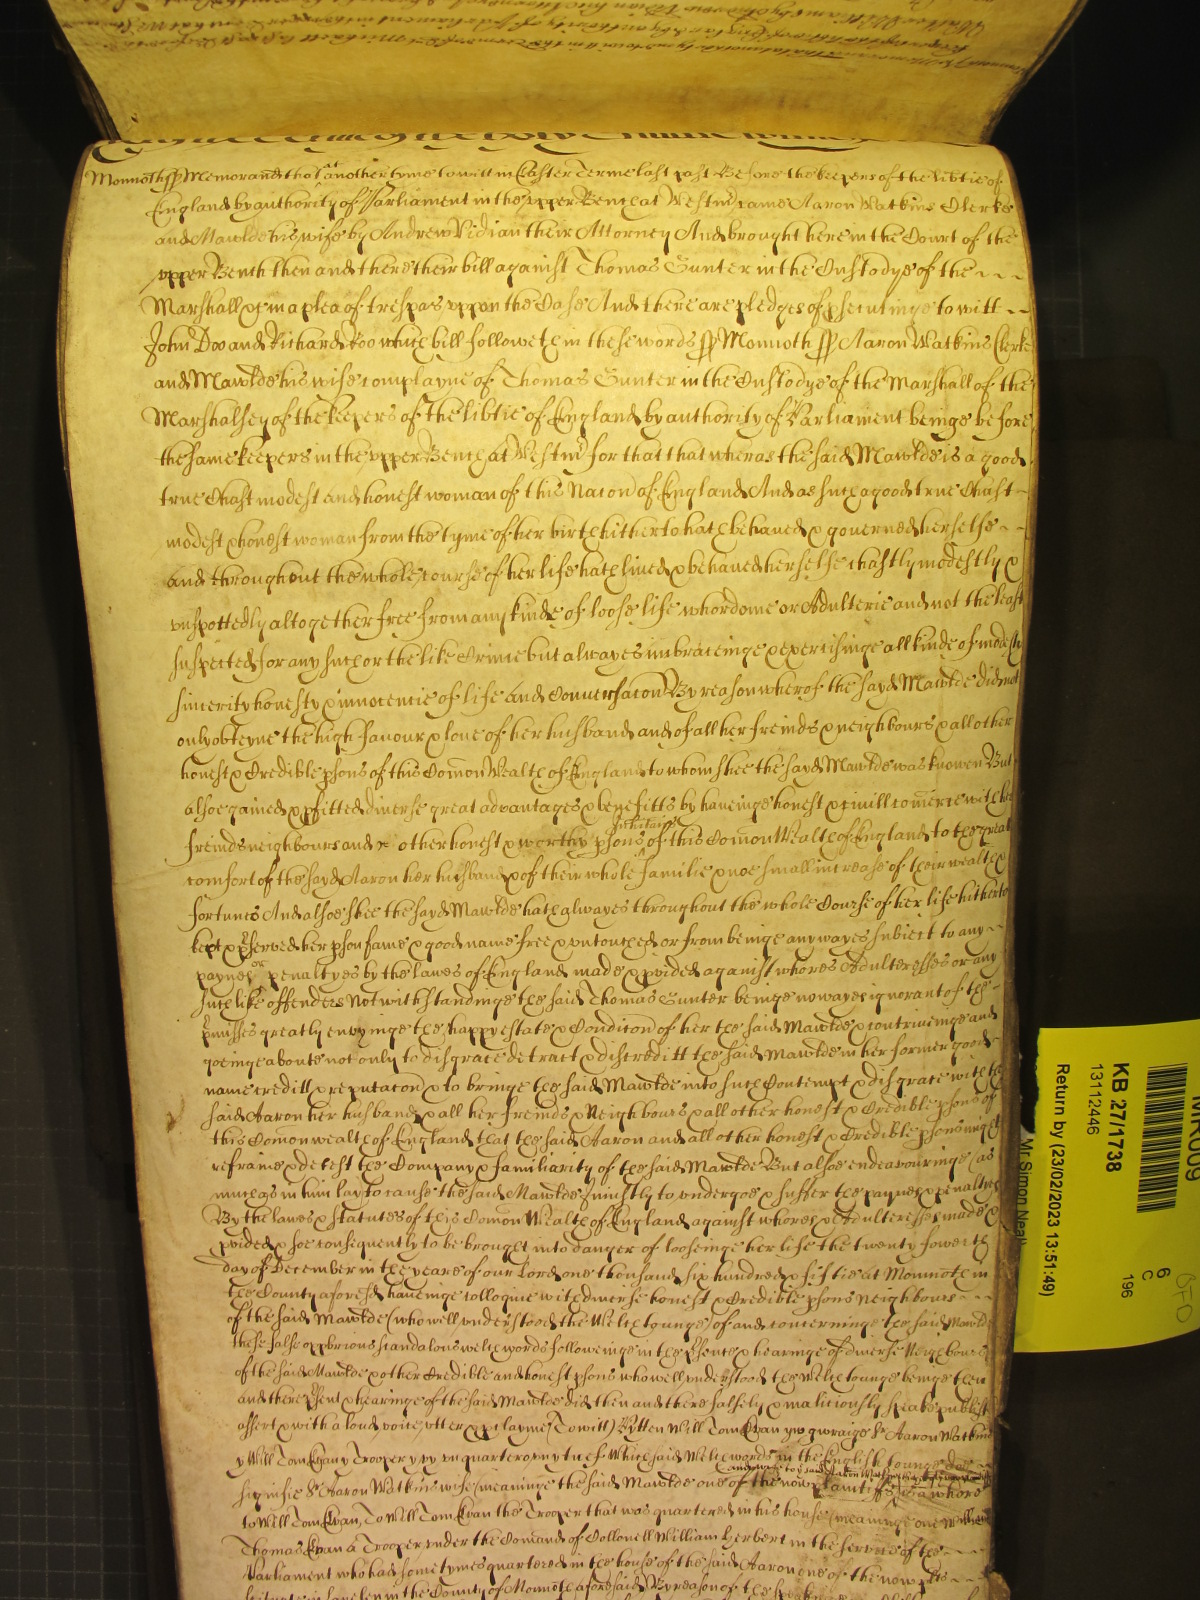 Monmoth ss Memorand that at another tyme to witt in Easter Terme last past Before the keepers of the libtie of
England by authority of Parliament in the upper Bench at Westm came Aaron Watkins Clerke
and Mawlde his wife by Andrew Vidian their Attorney And brought here in the Court of the
upper Bench then and there their bill against Thomas Gunter in the Custodye of the
Marshall &c in a plea of trespas uppon the Case And there are pledges of psecutinge to witt
John Doo and Richard Roo which bill followeth in these words ss Monmoth ss Aaron Watkins Clerke
and Mawlde his wife complayne of Thomas Gunter in the Custodye of the Marshall of the
Marshalsey of the keepers of the libtie of England by authority of Parliament beinge before
the same keepers in the upper Bench at Westm for that that wheras the said Mawlde is a good
true Chast modest and honest woman of this Nacon of England And as such a good true Chast
modest & honest woman from the tyme of her birth hitherto hath behaved & governed herselfe
and throughout the whole course of her life hath lived & behaved herselfe chastly modestly &
unspottedly altogether free from any kinde of loose life whordome or Adulterie and not the least
suspected for any such or the like Crime but alwayes imbraceinge & exercisinge all kinde of modesty
sincerity honesty & innocencie of life And Conversacon By reason wherof the sayd Mawlde did not
only obteyne the high favour & love of her husband and of all her freinds & neighbours & all other
honest & Credible psons of this Comon Wealth of England to whom shee the sayd Mawlde was knowen But
alsoe gained & pfitted diverse great advantages & benefitts by haveinge honest & civill comerce with her
freinds neighbours and other honest & worthy psons of this Comon Wealth of England to the great
comfort of the sayd Aaron her husband & of their whole familie & noe small increase of their wealth &
fortunes And alsoe shee the sayd Mawlde hath alwayes throughout the whole Course of her life hitherto
kept & pserved her pson fame & good name free & untouched or from beinge any wayes subject to any
paynes or penaltyes by the lawes of England made & pvided against whores Adulteresses or any
such like offenders Notwithstandinge the said Thomas Gunter beinge no wayes ignorant of the
pmisses greatly envyinge the happy estate & Condicon of her the said Mawlde & contriveinge and
goeinge aboute not only to disgrace detract & discreditt the said Mawlde in her former good
name creditt & reputacon & to bringe the said Mawlde into such Contempt & disgrace with the
said Aaron her husband & all her freinds & Neighbours & all other honest & Credible psons of
this Comonwealth of England that the said Aaron and all other honest & Credible psons might
refraine & detest the Company & familiarity of the said Mawlde But alsoe endeavouringe (as
much as in him lay) to cause the said Mawlde uniustly to undergoe & suffer the paynes & penaltyes
By the lawes & statutes of this Comon Wealth of England against whores & Adulteresses made &
pvided & soe consequently to be brought into danger of looseinge her life the twenty fowerth
day of December in the yeares of our Lord one thousand six hundred & fiftie at Monmoth in
the County aforesd haveinge colloquie with diverse honest & Credible psons Neighbours
of the said Mawlde (who well understood the Welch tounge) of and concerninge the said Mawlde
these false opprobrious scandalous welch words followeinge in the psence & hearinge of diverse Neighbours
of the said Mawlde & other Credible and honest psons who well understood the Welch tounge beinge then
and there psent & hearinge of the said Mawlde did then and there falsely & maliciously speake publish
assert & with a loud voice utter & pclayme (To witt) Will Tom Evan yw gwraige Sr Aaron Watkins
y Will Tom Evan y Trooper y quarter Which said Welch words in the English tounge doe
signifie Sr Aaron Watkins wife (meaninge the said Mawlde one of the now plaintiffs) is a whore
to Will Tom Evan, To Will Tom Evan the Trooper that was quartered in his house (meaninge one William
Thomas Evan a Trooper under the Comand of Collonell William Herbert in the service of the
Parliament who had sometymes quartered in the house of the said Aaron one of the now plts
in the County of Monmoth aforesaid) By reason of the speakinge
KB 27/1738
13112446
Return by (23/02/2023 13:51:49)
Mr Simon Neal
6
C
196